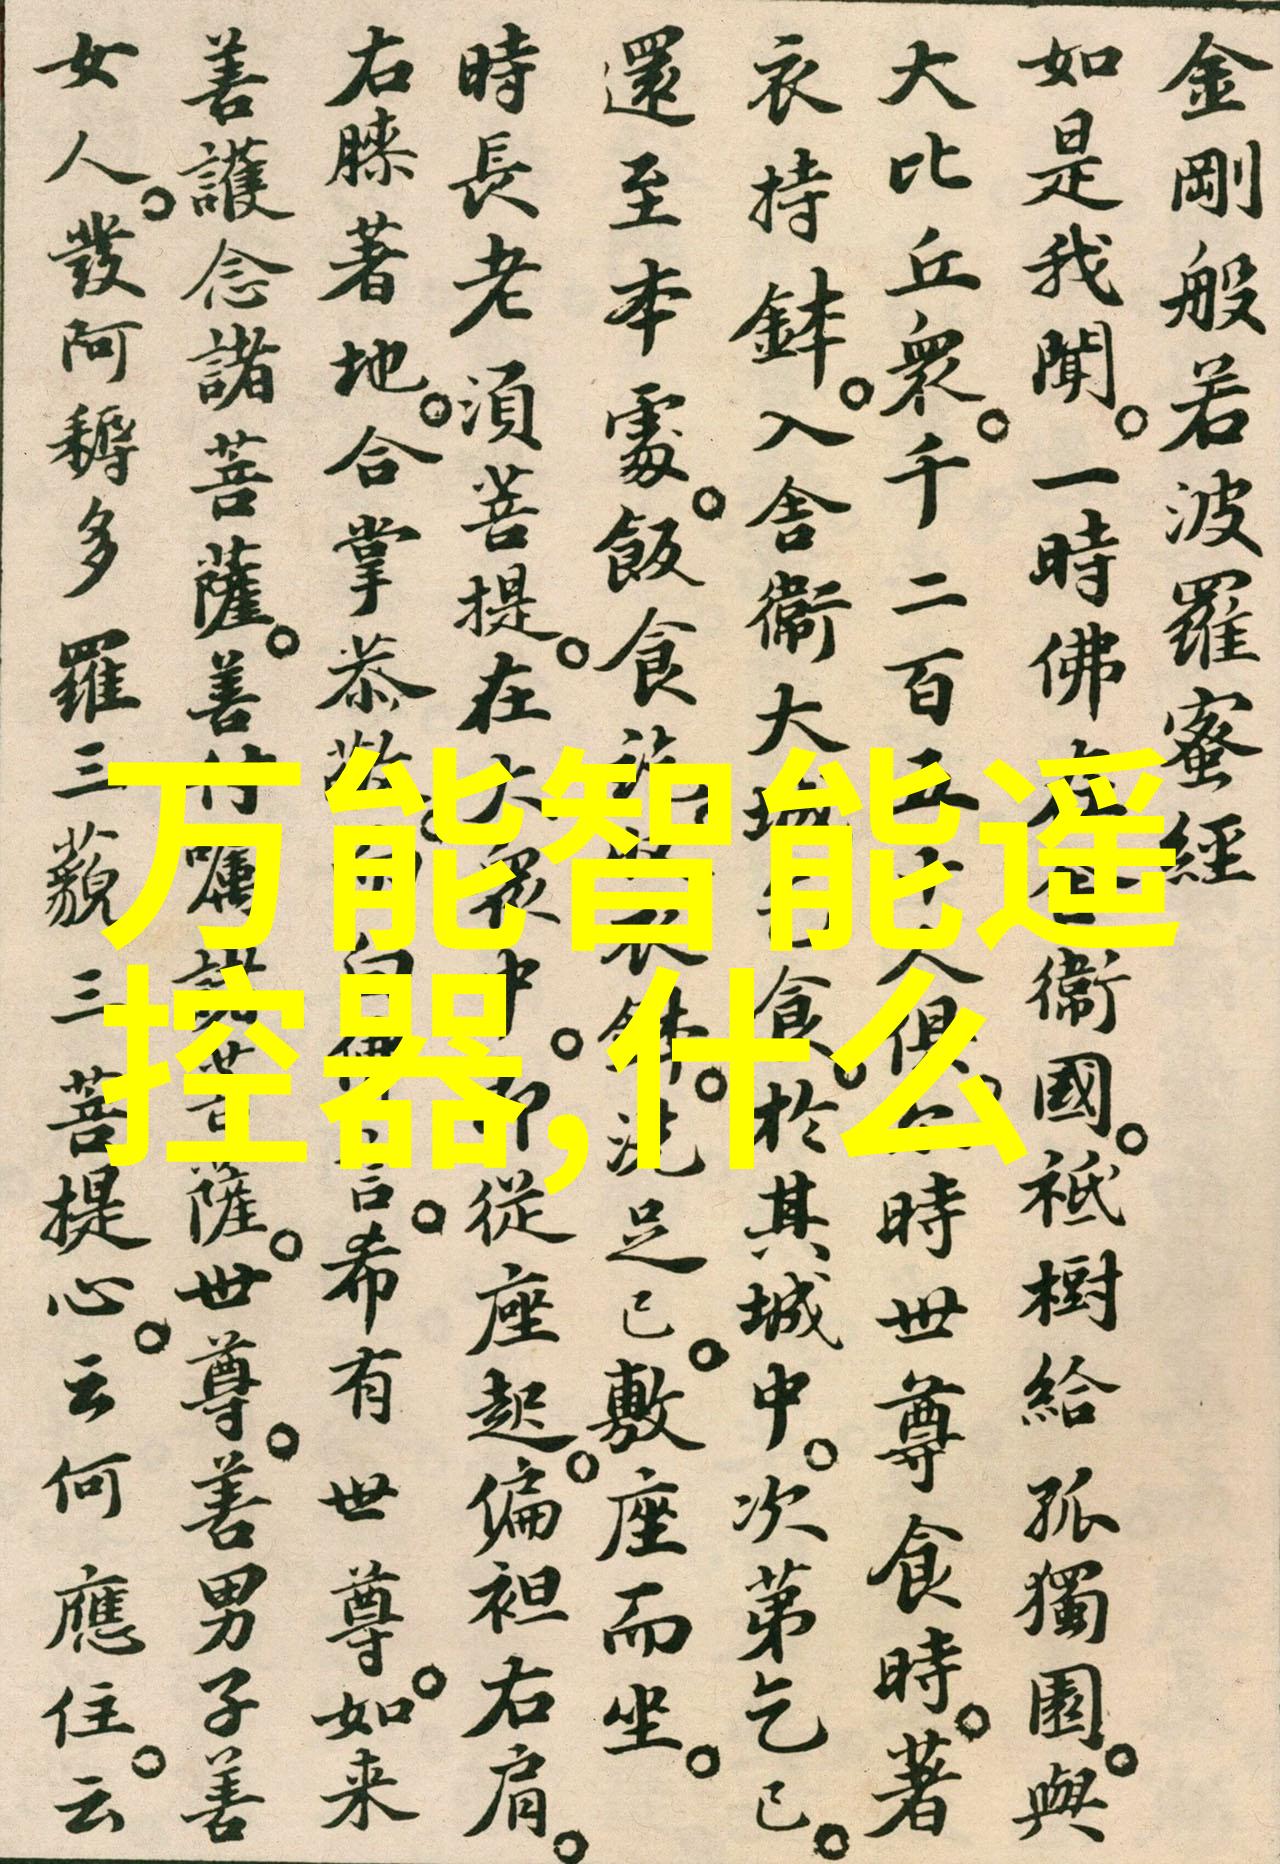 金剛般若波羅蜜經
如是我聞。一時佛在舍衛國。祗樹給孤獨園。與
大比丘衆。千二百五十人俱。尒時世尊食時。著
衣持鉢。入舍衛大城乞食。於其城中。次第乞已。
還至本處。飯食訖。收衣鉢。洗足已。敷座而坐。
時長老須菩提。在大衆中。即從座起。偏袒右肩。
右膝著地。合掌恭敬。而白佛言。希有世尊。如来
善護念諸菩薩。善付囑諸菩薩。世尊。善男子善
女人。發阿耨多羅三藐三菩提心。云何應住。云
万能智能遥
控器,什么